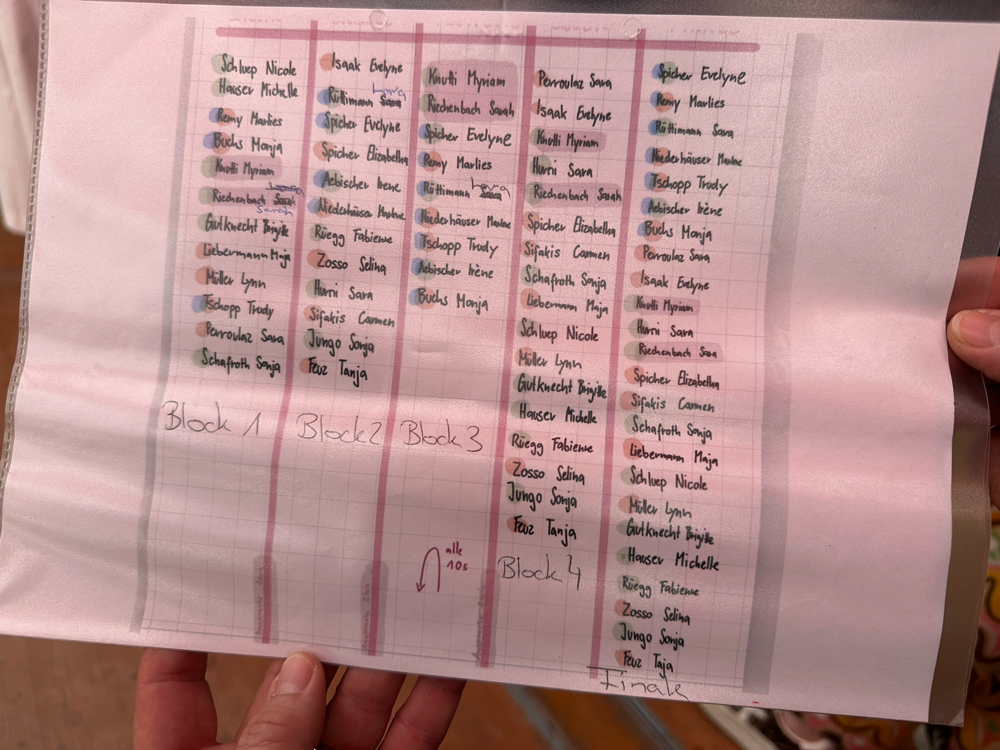 Schluep Nicole
Hauser Michelle
Remy Marlies
Buchs Monja
Knutti Myriam
Riedhenbach Sarah
Sarah
Gutknecht Brigitte
Liebermann Maja
Müller Lynn
Tschopp Trudy
Perroulaz Sara
Schafroth Sonja
Block 1
Isaak Evelyne
Lara
Rüttimann Sara
Spicher Evelyne
Spicher Elizabetha
Aebischer Irène
Niederhäuser Marlene
Rüegg Fabienne
Zosso Selina
Hurni Sara
Sifakis Carmen
Jungo Sonja
Feuz Tanja
Block 2
Knutti Myriam
Riechenbach Sarah
Spicher Evelyne
Remy Marlies
Lara
Rüttimann Sara
Niederhäuser Marlene
Tschopp Trudy
Aebischer Irène
Buchs Monja
Block 3
alle
10s
Perroulaz Sara
Isaak Evelyne
Knutti Myriam
Hurni Sara
Riedenbach Sarah
Spicher Elizabetha
Sifakis Carmen
Schafroth Sonja
Liebermann Maja
Schluep Nicole
Müller Lynn
Gutknecht Brigitte
Hauser Michelle
Rüegg Fabienne
Zosso Selina
Jungo Sonja
Feuz Tanja
Block 4
Spicher Evelyne
Remy Marlies
Rüttimann Sara
Niederhäuser Marlene
Tschopp Trudy
Aebischer Irène
Buchs Monja
Perroulaz Sara
Isaak Evelyne
Knutti Myriam
Hurni Sara
Riechenbach Sara
Spicher Elizabetha
Sifakis Carmen
Schafroth Sonja
Liebermann Maja
Schluep Nicole
Müller Lynn
Gutknecht Brigitte
Hauser Michelle
Rüegg Fabienne
Zosso Selina
Jungo Sonja
Feuz Taja
Finale